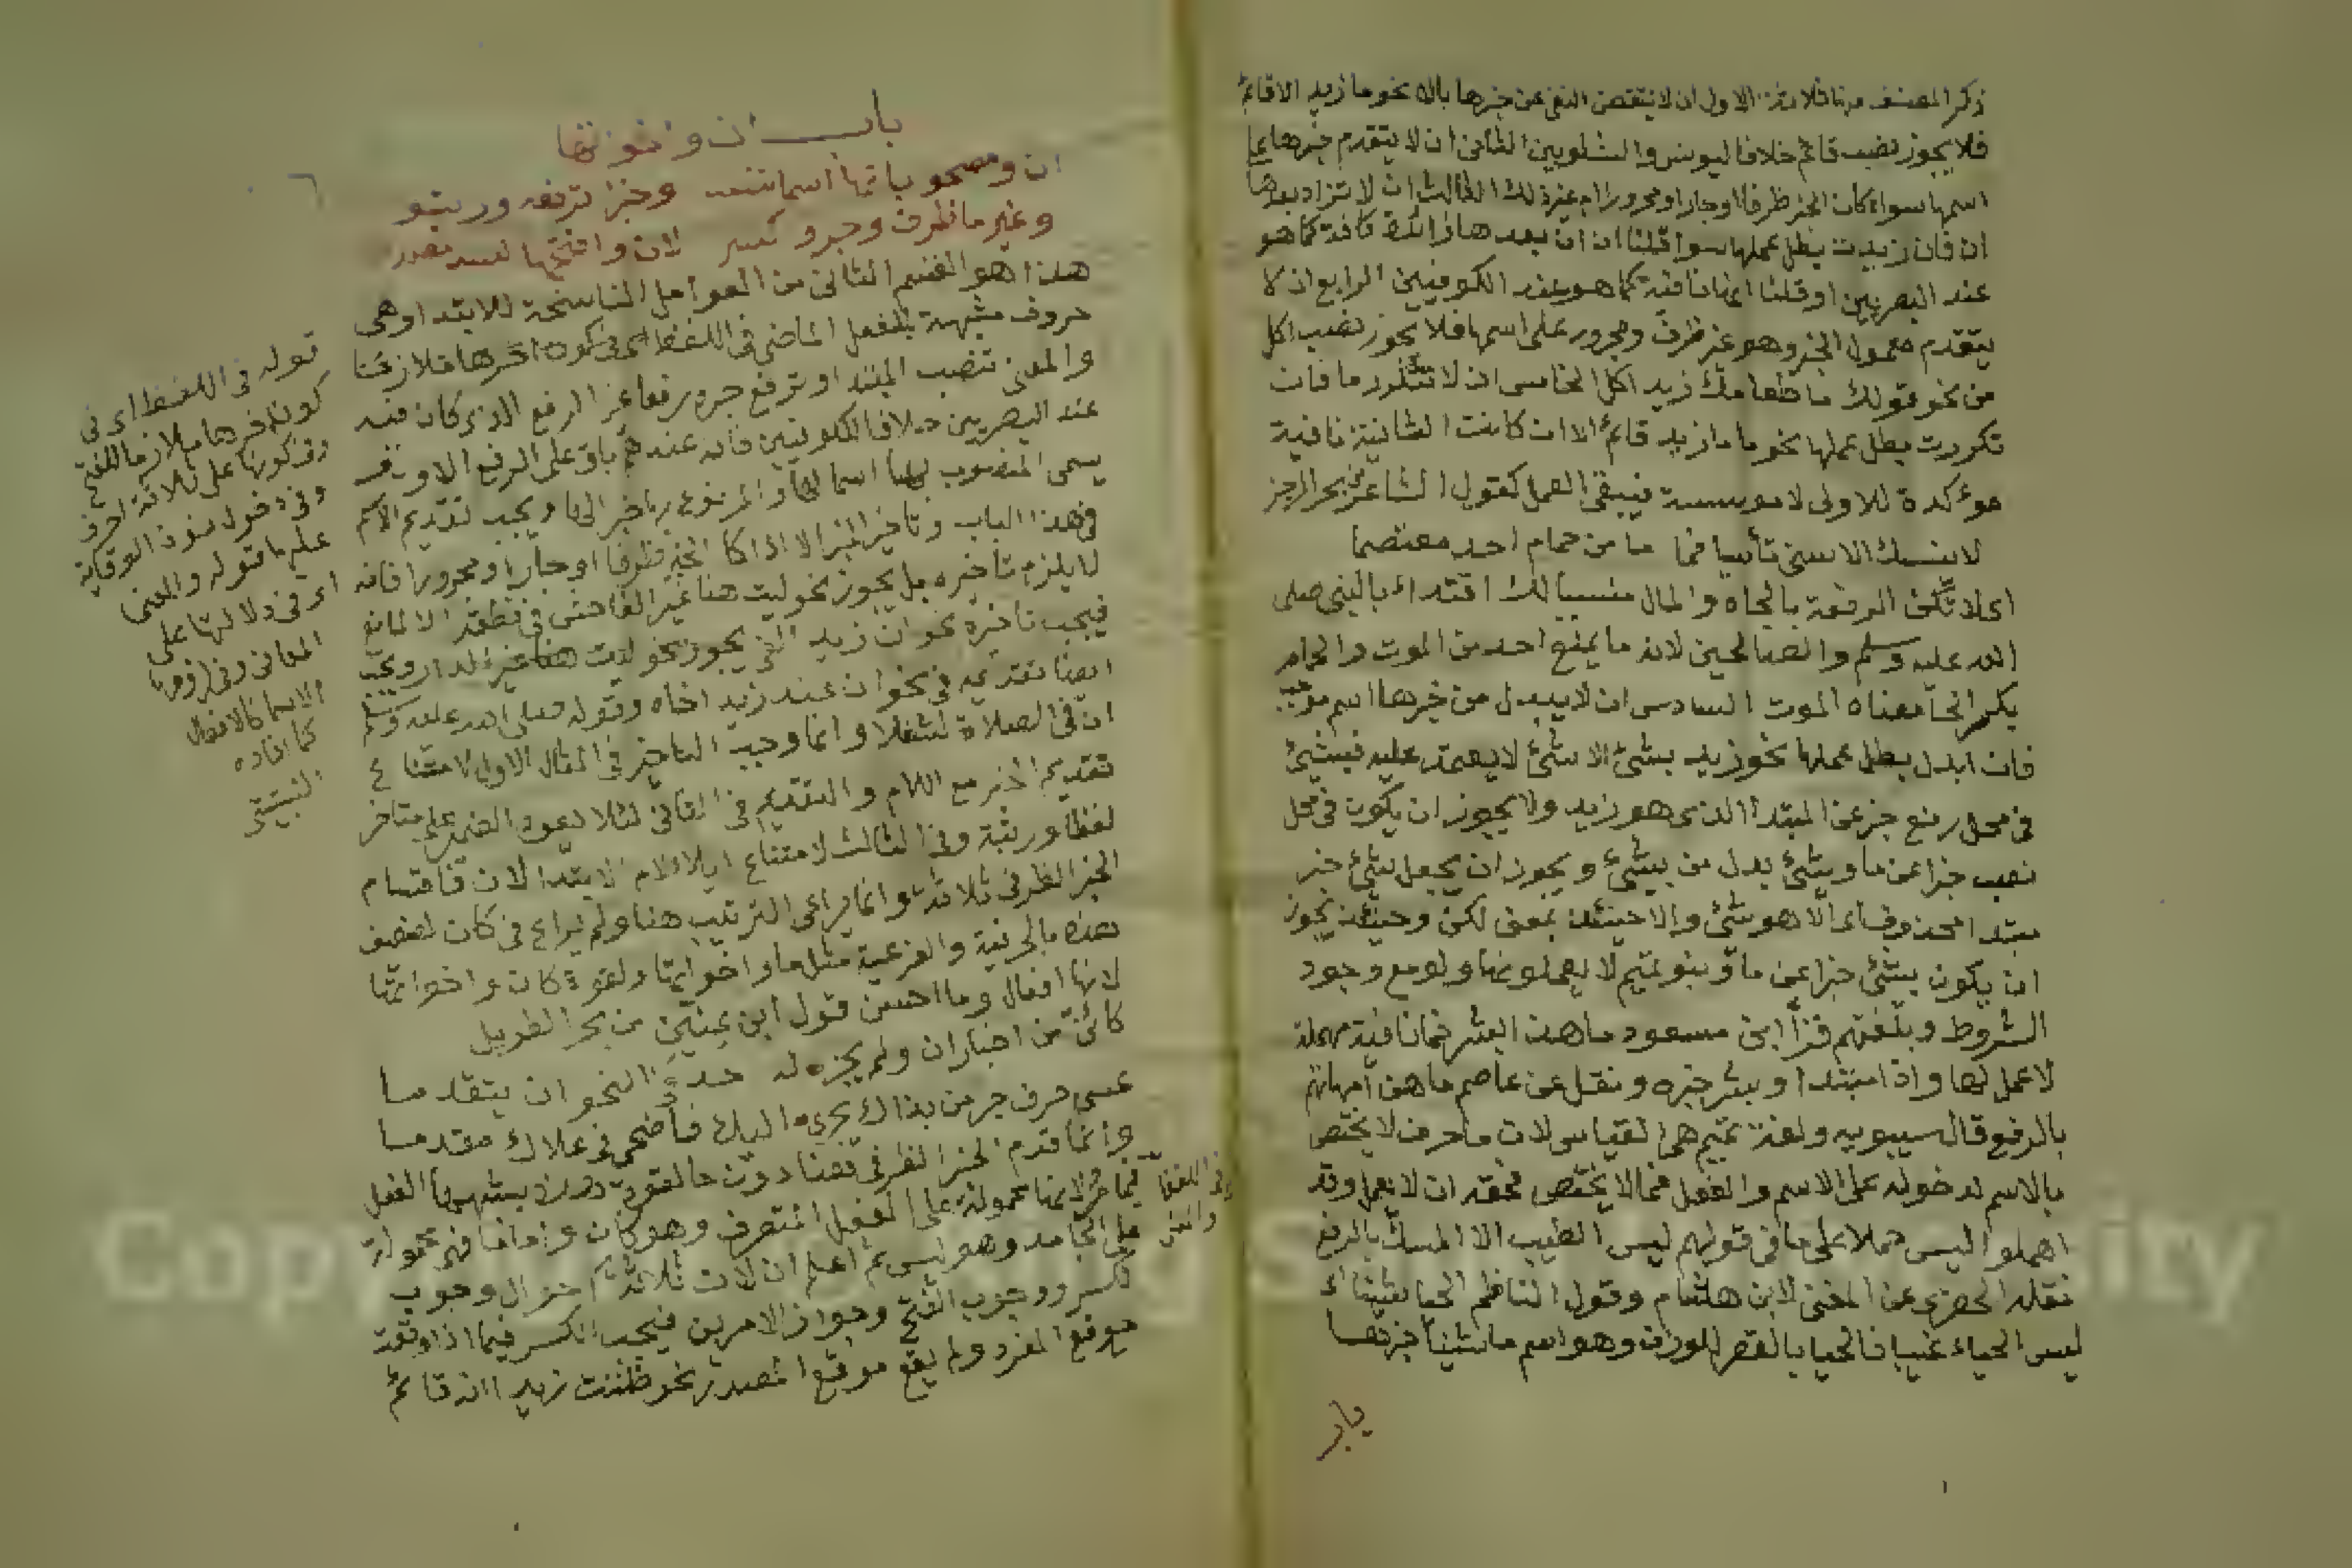 ذكر المصنف منها ثلاثة الاول ان لا ينتقض النفي عن خبرها بالا نحو ما زيد الا قائم
فلا يجوز نصب قائم خلافا ليونس والشلوبين الثاني ان لا يتقدم خبرها على
اسمها سواء كان الخبر ظرفا او جارا ومجرورا او غير ذلك الثالث ان لا تزاد بعدها
ان فان زيدت بطل عملها سوا قلنا ان ان بعدها زائدة كافة كما هو
عند البصريين او قلنا انها نافية كما هو عند الكوفيين الرابع ان لا
يتقدم معمول الخبر وهو غير ظرف ومجرور على اسمها فلا يجوز نصب اكل
من نحو قولك ما طعامك زيد اكل الخامس ان لا تتكرر ما فان
تكررت بطل عملها نحو ما ما زيد قائم الا ان كانت الثانية نافية
موكدة للاولى لا موسسة فيبقى العمل كقول الشاعر من بحر الرجز
لا ينسك الاسى تأسيا فما ما من حمام احد معتصما
اى لا تكن الرفعة بالجاه والمال منسيا لك اقتداء بالنبي صلى
الله عليه وسلم والصالحين لانه ما يمنع احد من الموت والحمام
بكسر الحا معناه الموت السادس ان لا يبدل من خبرها اسم موجب
فان ابدل بطل عملها نحو زيد بشئ الا شئ لا يعتد عليه فبشئ
في محل رفع خبر عن المبتدا الذى هو زيد ولا يجوز ان يكون في محل
نصب خبرا عن ما وشئ بدل من بشئ ويجوز ان يجعل شئ خبر
مبتدا محذوف اى الا هو شئ والا حينئذ بمعنى لكن وحينئذ يجوز
ان يكون بشئ خبرا عن ما وبنو تميم لا يعملونها ولو مع وجود
الشروط وبلغتهم قرأ ابن مسعود ما هذا بشر فما نافية مهملة
لا عمل لها وذا مبتدا وبشر خبره ونقل عن عاصم ما هن امهاتهم
بالرفع قال سيبويه ولغة تميم هى القياس لان ما حرف لا يختص
بالاسم لدخوله على الاسم والفعل فما لا يختص فحقه ان لا يعمل وقد
اهملوا ليس حملا على ما في قولهم ليس الطيب الا المسك بالرفع
نقله الحضرى عن المغنى لابن هشام وقول الناظم الحيا
ليس الحياء عيبا فالحيا بالقصر للوزن وهو اسم ما شينا خبرها
باب
باب ان واخواتها
ان ومصحوباتها اسما تنصب وخبرا ترفعه ورتبوا
وغير ما ظرف وجر و كسر لان وافتحها لسد مصدر
هذا هو القسم الثانى من العوامل الناسخة للابتدا وهى
حروف مشبهة بالفعل الماضى في اللفظ اى في كون اخرها ملازما
والمعنى تنصب المبتدا وترفع خبره رفعا غير الرفع الذى كان فيه
عند البصريين خلافا للكوفيين فانه عندهم باق على الرفع الاول
يسمى المنصوب بها اسما لها والمرفوع بها خبرا لها ويجب تقديم الاسم
في هذا الباب وتاخير الخبر الا اذا كان الخبر ظرفا او جارا ومجرورا فانه
لا يلزم تاخيره بل يجوز نحو ليت هنا غير الفاحش في نطقه الا لمانع
فيجب تاخيره نحو ان زيد يجوز نحو ليت هنا غير الدار ويجب
ايضا تقديمه في نحو ان عند زيد اخاه وقوله صلى الله عليه وسلم
ان في الصلاة لشغلا وانما وجب التاخير في المثال الاول لامتناع
تقديم الخبر مع اللام والتقديم في الثانى لئلا يعود الضمير على متاخر
لفظا ورتبة وفي الثالث لامتناع ايلا لام الابتدا لان فاقسام
الخبر الظرفى ثلاثة وانما يراعى الترتيب هنا ولم يراع في كان لضعف
هذه بالحرفية والفرعية مثل ما واخواتها ولقوة كان واخواتها
لانها افعال وما احسن قول ابن عنين من بحر الطويل
كانى من اخبار ان ولم يجز له احد في النحو ان يتقدما
عسى حرف جر من نداك يجرنى اليك فاضحى في علاك مقدما
وانما قدم الخبر الظرفى هنا دون ما لقوة هذه بشبهها الفعل
فيما لانها محمولة على الفعل المتصرف وهو كان واما ما فهى محمولة
على الجامد وهو ليس ثم اعلم ان لان ثلاثة احوال وجوب
كسر ووجوب الفتح وجواز الامرين فيجب الكسر فيما اذا وقعت
موقع المفرد ولم يقع موقع المصدر نحو ظننت زيدا انه قائم
قوله في اللفظ اى في
كون اخرها ملازما للفتح
وفى كونها على ثلاثة احرف
وفى دخول نون الوقاية
عليها قوله والمعنى
اى في دلالتها على
المعانى وفى لزومها
الاسما كالافعال
كما افاده
في اللفظ
والمعنى
Copyright © King Saud University